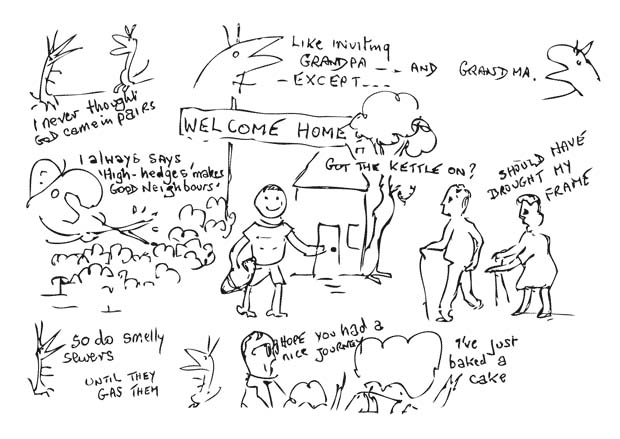 Like inviting
GRANDPA -- AND GRANDMA.
- EXCEPT ----
I never thought
GOD came in pairs
WELCOME HOME
GOT THE KETTLE ON?
SHOULD HAVE
BROUGHT MY
FRAME
I always says
'High-hedges' makes
GOOD Neighbours'
So do smelly
sewers
UNTIL THEY
GAS THEM
HOPE YOU HAD A
nice JOURNEY
I've just
baked a
cake